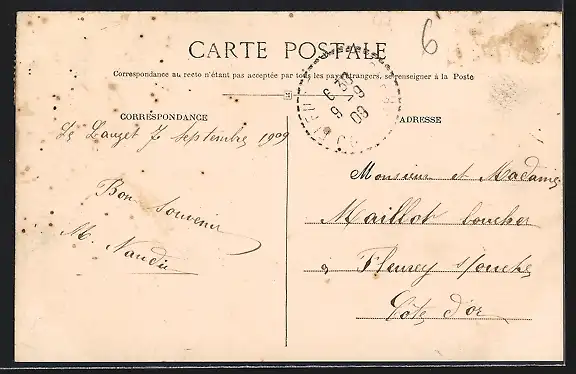 6
CARTE POSTALE
Correspondance au recto n'étant pas acceptée par tous les pays étrangers, se renseigner à la Poste
CORRESPONDANCE
ADRESSE
Le Lauzet 7 Septembre 1909
Bon souvenir
M. Naudin
Monsieur et Madame
Maillot boucher
à Fleurey s/ouche
Côte d'or